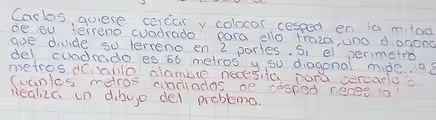 Carlos quiere cercar y colocar cesped en la mitad
de su terreno cuadrado para ello traza una diagona
que divide su terreno en 2 partes. Si el perimetro
del cuadrado es 66 metros y su diagonal mide
metros alambre necesita para cercarlo
Cuantos metros cuadrados de cesped
Realiza un dibujo del problema.